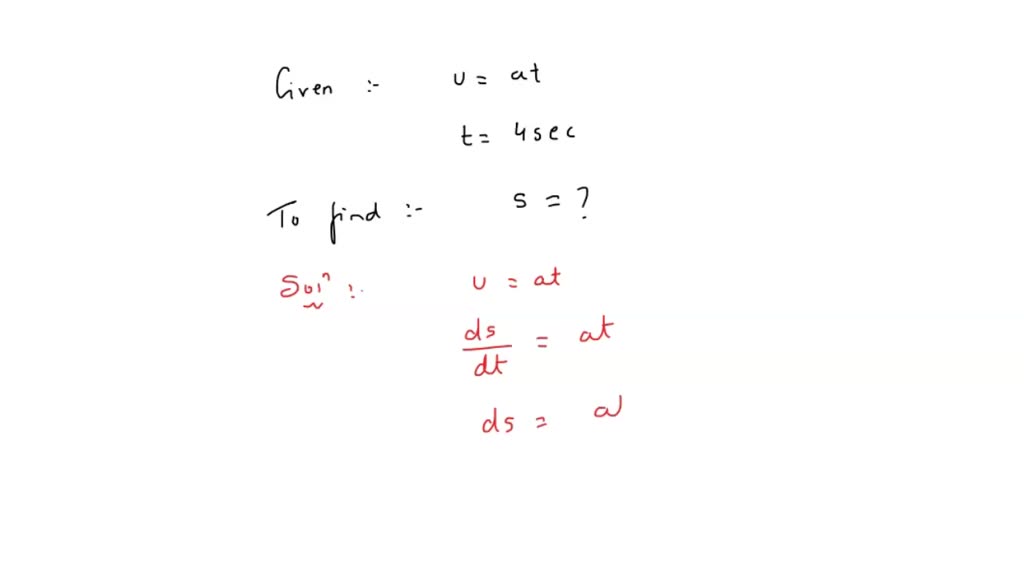 Given :- u = at
t = 4 sec
To find :- s = ?
Soln :. u = at
ds/dt = at
ds =